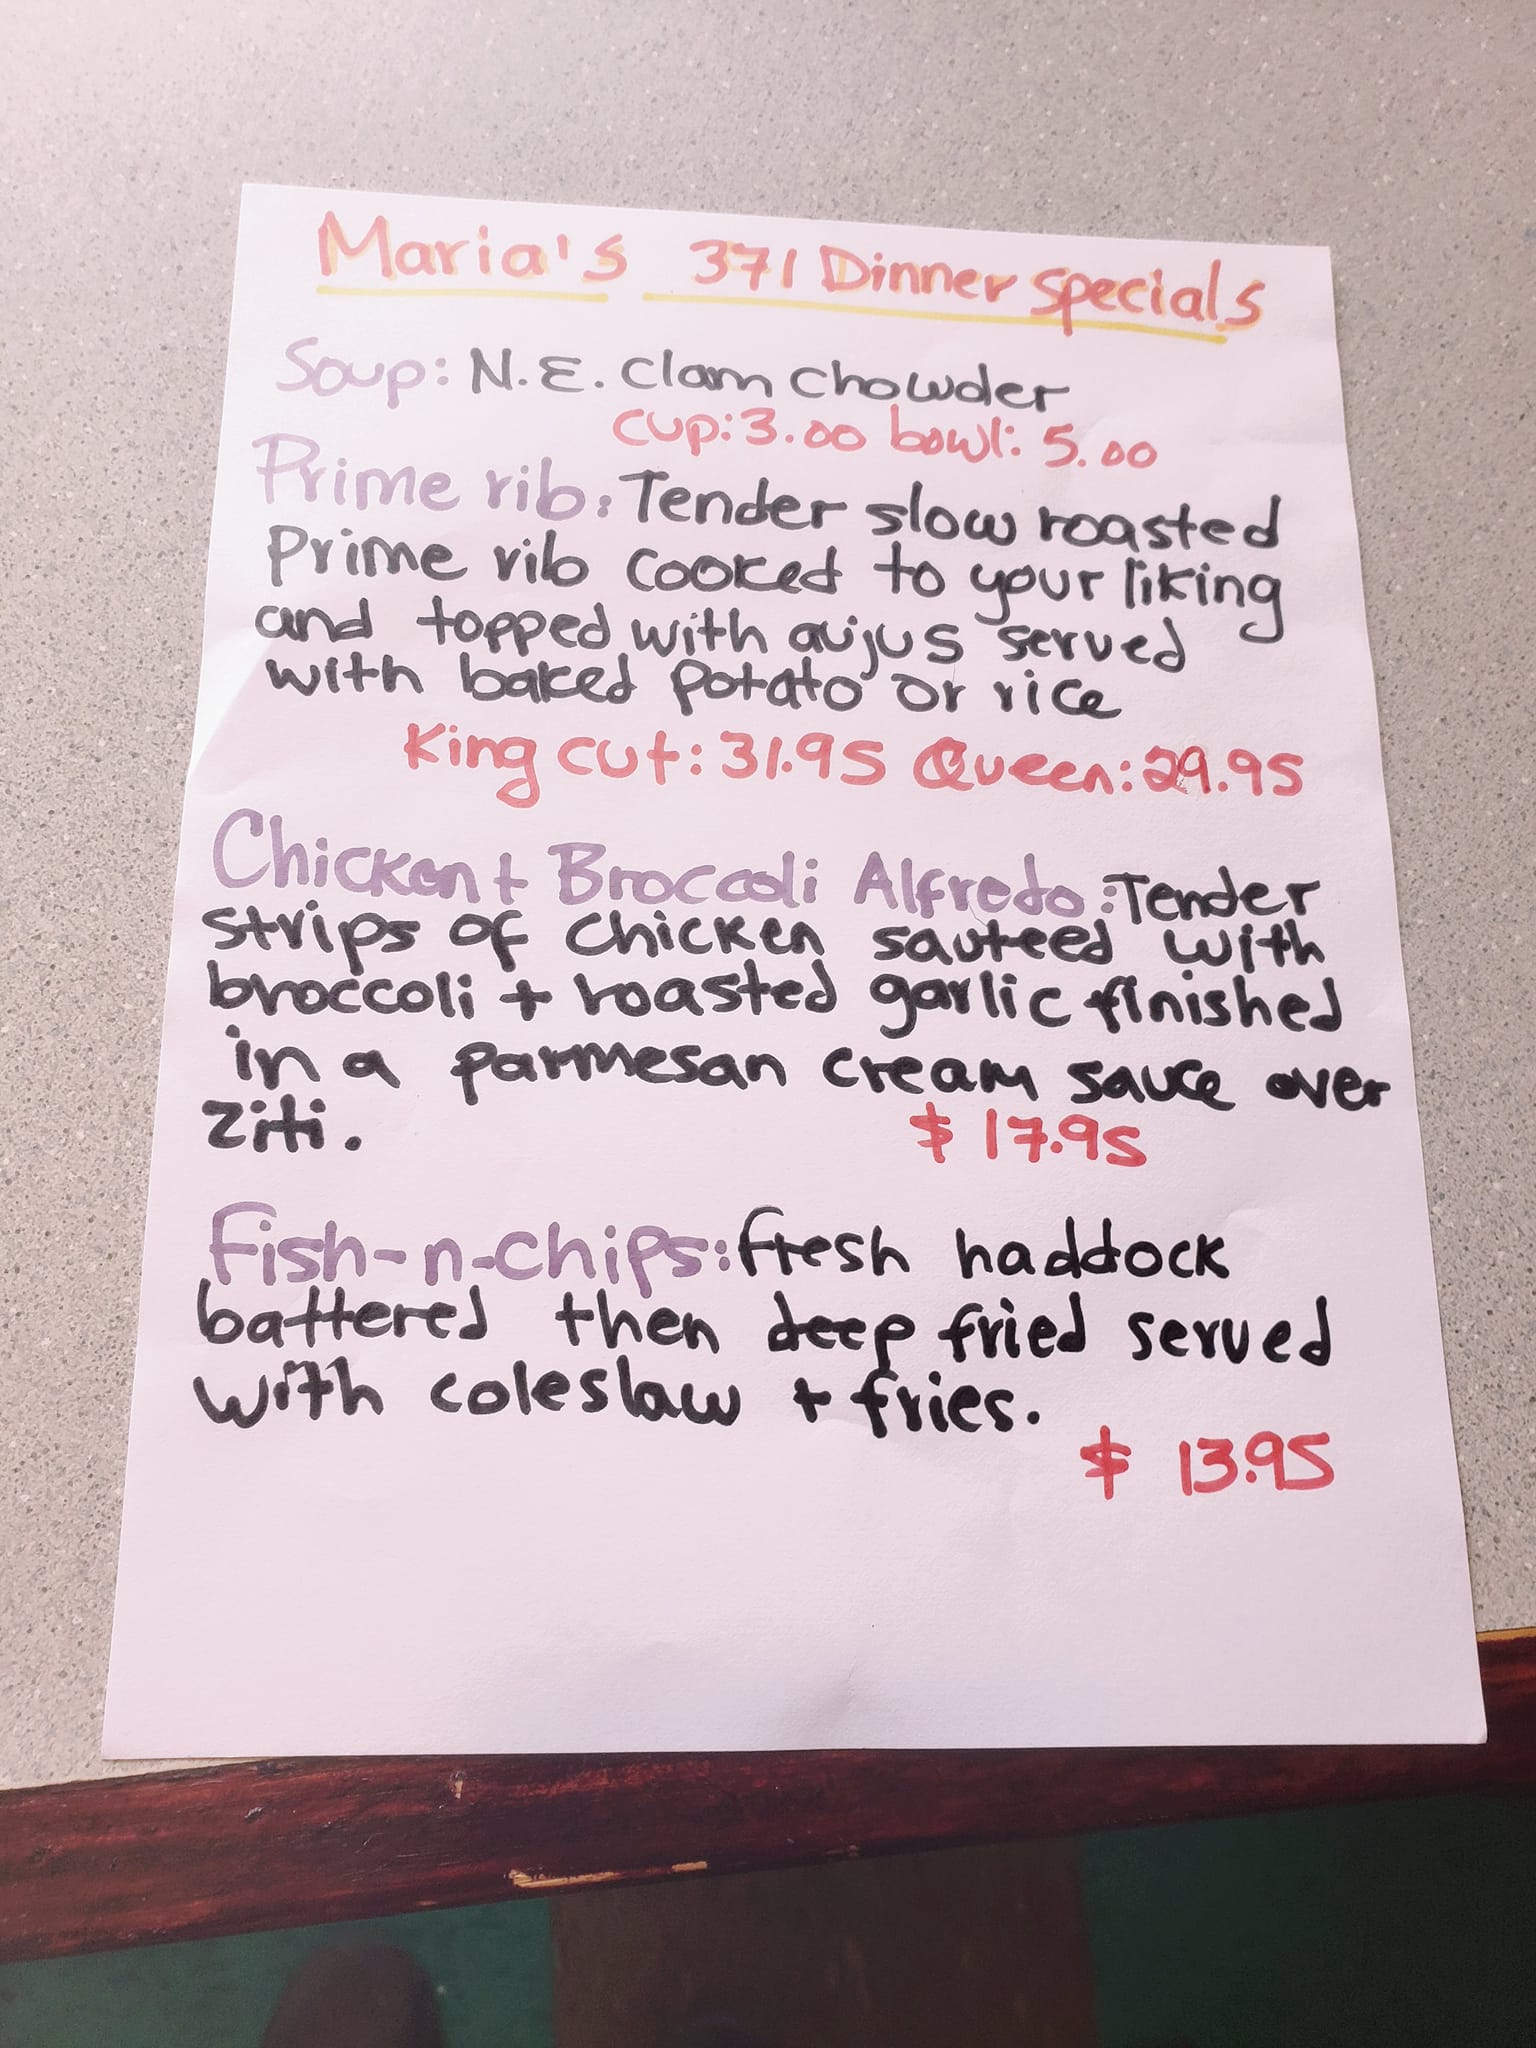 Maria's 371 Dinner Specials
Soup: N.E. Clam Chowder
cup: 3.00 bowl: 5.00
Prime rib: Tender slow roasted
prime rib cooked to your liking
and topped with aujus served
with baked potato or rice
King cut: 31.95 Queen: 29.95
Chicken + Broccoli Alfredo: Tender
strips of chicken sauteed with
broccoli + roasted garlic finished
in a parmesan cream sauce over
ziti.
$ 17.95
Fish-n-chips: fresh haddock
battered then deep fried served
with coleslaw + fries.
$ 13.95